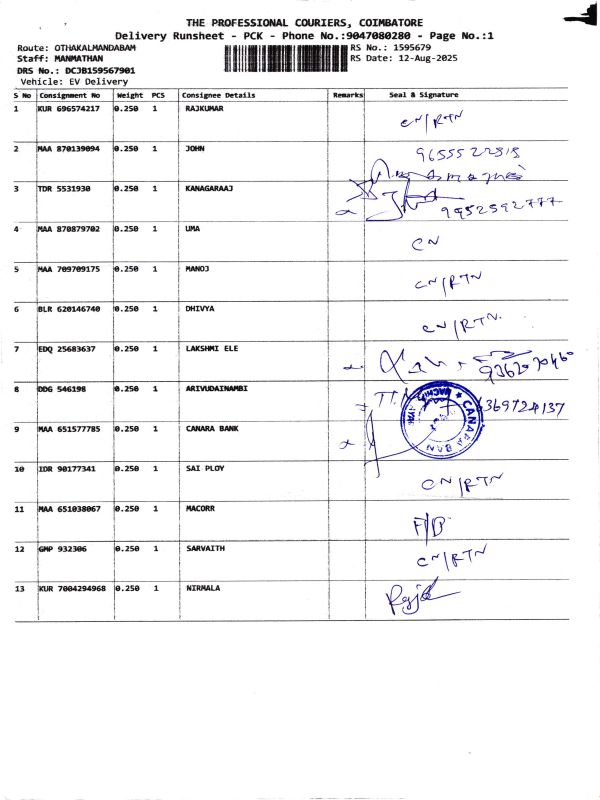 THE PROFESSIONAL COURIERS, COIMBATORE
Delivery Runsheet - PCK - Phone No.:9047080280 - Page No.:1
Route: OTHAKALMANDABAM RS No.: 1595679
Staff: MANMATHAN RS Date: 12-Aug-2025
DRS No.: DCJB159567901
Vehicle: EV Delivery
S No Consignment No Weight PCS Consignee Details Remarks Seal & Signature
1 KUR 696574217 0.250 1 RAJKUMAR CN/RTN
2 MAA 870139094 0.250 1 JOHN
3 TDR 5531930 0.250 1 KANAGARAAJ 9952592777
4 MAA 870879702 0.250 1 UMA CN
5 MAA 709709175 0.250 1 MANOJ CN/RTN
6 BLR 620146740 0.250 1 DHIVYA CN/RTN.
7 EDQ 25683637 0.250 1 LAKSHMI ELE
8 DDG 546198 0.250 1 ARIVUDAINAMBI 6369724137
9 MAA 651577785 0.250 1 CANARA BANK CANARA BANK
10 IDR 90177341 0.250 1 SAI PLOY CN/RTN
11 MAA 651038067 0.250 1 MACORR
12 GMP 932306 0.250 1 SARVAITH CN/RTN
13 KUR 7004294968 0.250 1 NIRMALA